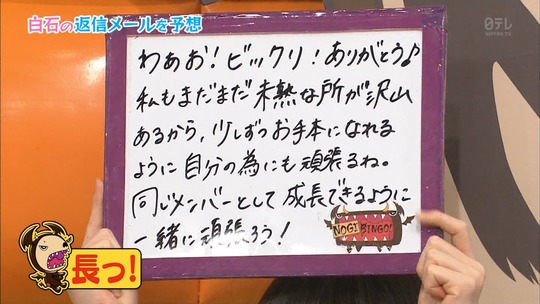 白石の返信メールを予想
日テレ
NIPPON TV
わぁお！ビックリ！ありがとう♪
私もまだまだ未熟な所が沢山
あるから、少しずつお手本になれる
ように自分の為にも頑張るね。
同じメンバーとして成長できるように
一緒に頑張ろう！
NOGI BINGO!
長っ！